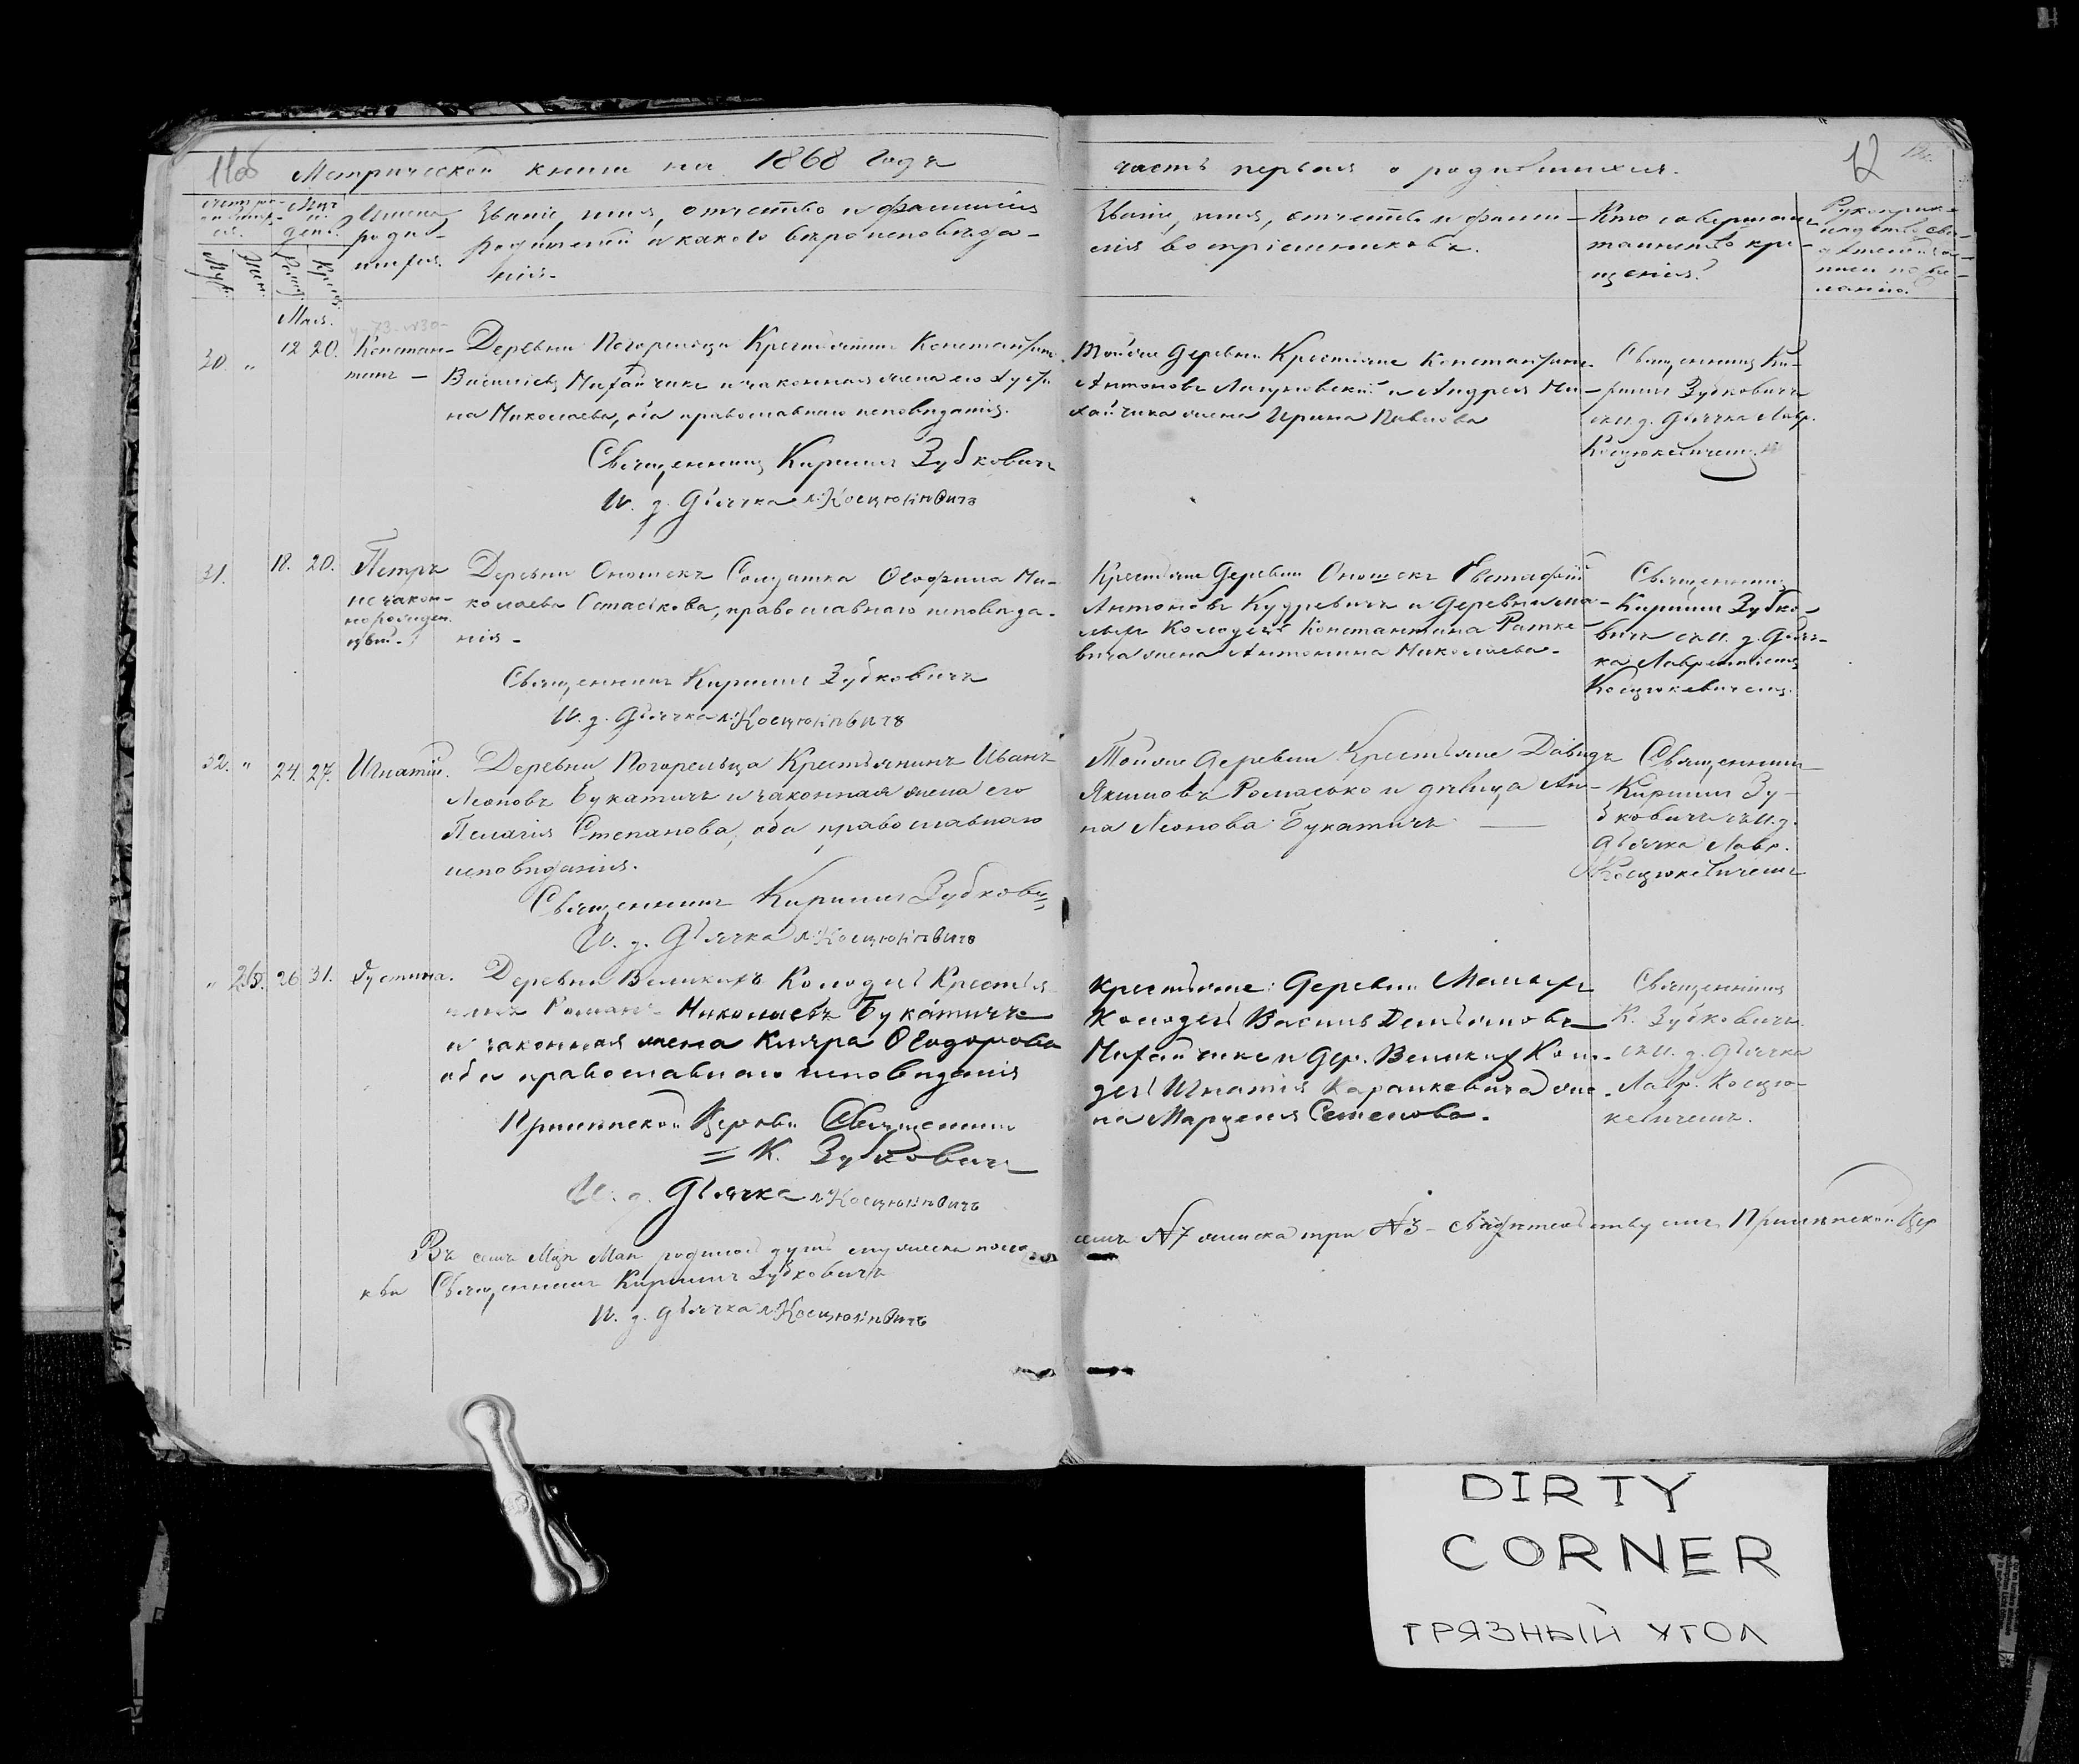 11об Метрической книги на 1868 годъ
часть первая о родившихся.
12
Имена родив-
шихся.
Званіе, имя, отчество и фамилія
родителей и какого вѣроисповѣда-
нія.
Званіе, имя, отчество и фами-
лія воспріемниковъ.
Кто совершалъ
таинство кре-
щенія?
Рукоприк-
Муж. Жен. Рожд. Крещ.
Мая.
30. " 12 20. Констан-
тинъ —
Деревни Погорельца Крестьянинъ Константинъ
Васильевъ Михайчикъ и законная жена его Іусти-
на Николаева, оба православнаго исповѣданія.
Священникъ Кириллъ Зубковичъ
И. д. Дьячка Л. Косцюкевичъ
Тойже деревни Крестьяне Константинъ
Антоновъ и Андрея Ми-
хайчика жена Ирина Павлова
Священникъ Ки-
риллъ Зубковичъ
съ и. д. Дьячка Лавр.
Косцюкевичемъ.
31. 18. 20. Петръ
незакон-
норожден-
ный.
Деревни Оношекъ Солдатка Ѳеофила Ни-
колаева Осташкова, православнаго исповѣда-
нія —
Священникъ Кириллъ Зубковичъ
И. д. Дьячка Л. Косцюкевичъ
Крестьяне деревни Оношекъ Евстафій
Антоновъ Кудревичъ и деревни Ма-
лыхъ Колодезей Константина Ратке-
вича жена Антонина Николаева.
Священникъ
Кириллъ Зубко-
вичъ съ и. д. Дьяч-
ка Лаврентіемъ
Косцюкевичемъ.
32. " 24. 27. Игнатій.
Деревни Погорельца Крестьянинъ Иванъ
Леоновъ Букатичъ и законная жена его
Пелагія Степанова, оба православнаго
исповѣданія.
Священникъ Кириллъ Зубкович
И. д. Дьячка Л. Косцюкевичъ
Тойже деревни Крестьяне Давидъ
Якимовъ Ромасько и дѣвица Ан-
на Леонова Букатичъ —
Священникъ
Кириллъ Зу-
бковичъ съ и. д.
Дьячка Лавр.
Косцюкевичемъ
" 26. 31. Іустина.
Деревни Великихъ Колодезей Крестья-
нинъ Романъ Николаевъ Букатичъ
и законная жена Кляра Ѳеодорова
оба православнаго исповѣданія
Церкви Священникъ
= К. Зубковичъ
И. д. Дьячка Л. Косцюкевичъ
Крестьяне: деревни Малыхъ
Колодезей Василь Демьяновъ
Михайчикъ и дер. Великихъ Коло-
дезей Игнатія Каранкевича же-
на Марцеля Семенова.
Священникъ
К. Зубковичъ
съ и. д. Дьячка
Лавр. Косцю-
кевичемъ.
Въ семъ Мцѣ Маѣ родилось душъ мужеска пола семь № 7 женска три № 3 — свидѣтельствуемъ Церк-
кви Священникъ Кириллъ Зубковичъ
И. д. Дьячка Л. Косцюкевичъ
DIRTY
CORNER
ГРЯЗНЫЙ УГОЛ